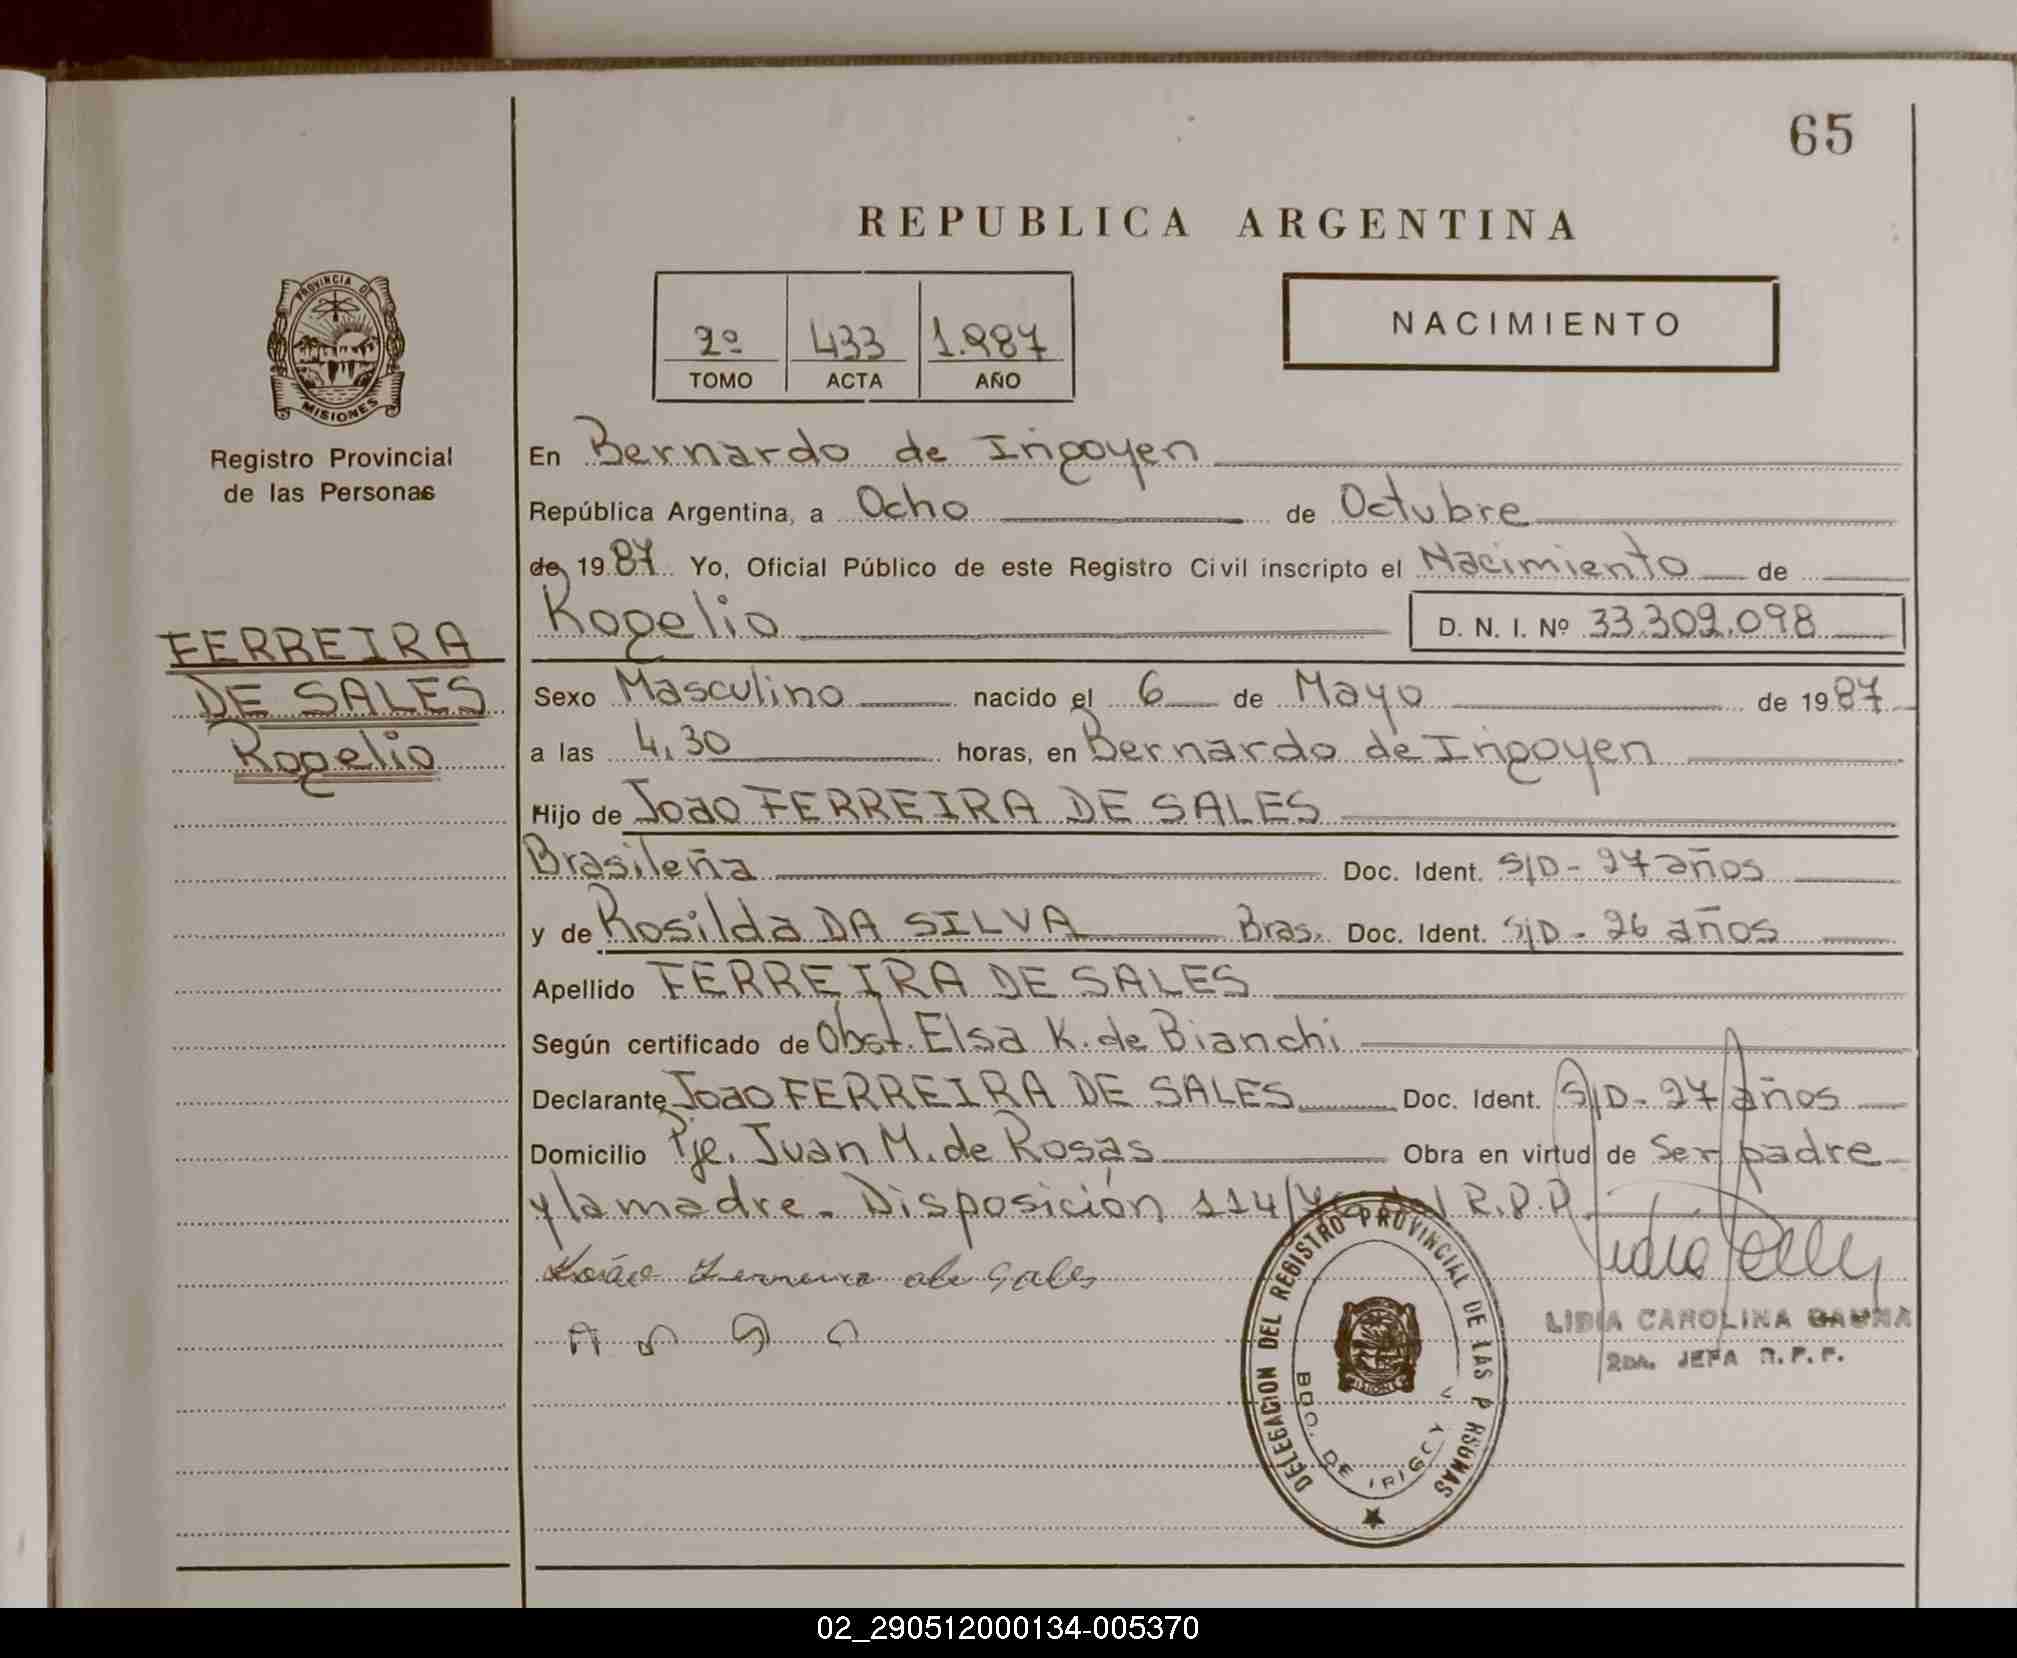 65
REPUBLICA ARGENTINA
PROVINCIA DE
MISIONES
Registro Provincial
de las Personas
2º 433 1.987
TOMO ACTA AÑO
NACIMIENTO
En Bernardo de Irigoyen
República Argentina, a Ocho de Octubre
de 1987 Yo, Oficial Público de este Registro Civil inscripto el Nacimiento de
Rogelio D. N. I. Nº 33.309.098
FERREIRA
DE SALES
Rogelio
Sexo Masculino nacido el 6 de Mayo de 1987
a las 4,30 horas, en Bernardo de Irigoyen
Hijo de Joao FERREIRA DE SALES
Brasileña Doc. Ident. S/D- 27 años
y de Rosilda DA SILVA Bras. Doc. Ident. S/D- 26 años
Apellido FERREIRA DE SALES
Según certificado de Obst. Elsa K. de Bianchi
Declarante Joao FERREIRA DE SALES Doc. Ident. S/D- 27 años
Domicilio Pje. Juan M. de Rosas Obra en virtud de Ser padre
y la madre. Disposición 114/ del R.P.P.
João Ferreira de Sales
LIDIA CAROLINA
2DA. JEFA R.P.P.
DELEGACION DEL REGISTRO PROVINCIAL DE LAS P RSONAS
BDO. DE IRIGOY
02_290512000134-005370